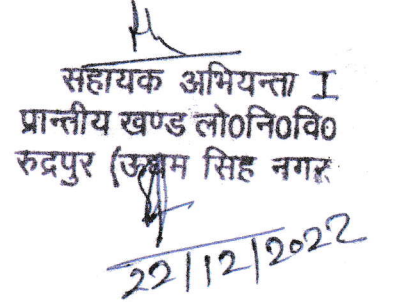 सहायक अभियन्ता I
प्रान्तीय खण्ड लो०नि०वि०
रुद्रपुर (ऊधम सिंह नगर
22/12/2022